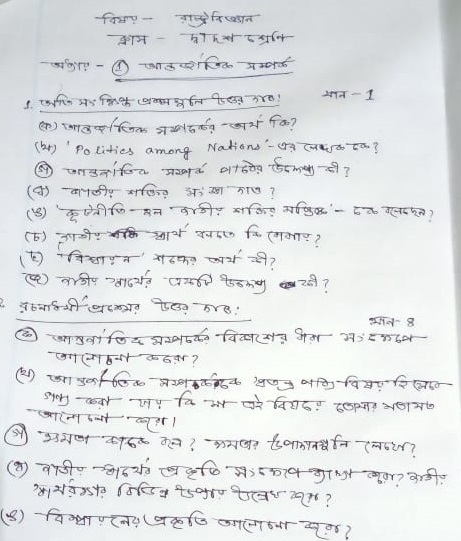 বিষয় - রাষ্ট্রবিজ্ঞান
ক্লাস - দ্বাদশ শ্রেণি
অধ্যায় - ① আন্তর্জাতিক সম্পর্ক
1. অতি সংক্ষিপ্ত প্রশ্নগুলির উত্তর দাও! মান - 1
(ক) আন্তর্জাতিক সম্পর্কের অর্থ কি?
(খ) 'Politics among Nations' - এর লেখক কে?
(গ) আন্তর্জাতিক সম্পর্ক পাঠের উদ্দেশ্য কী?
(ঘ) জাতীয় শক্তির সংজ্ঞা দাও?
(ঙ) 'কূটনীতি হল জাতীয় শক্তির মস্তিষ্ক' - কে বলেছেন?
(চ) জাতীয় স্বার্থ বলতে কি বোঝায়?
(ছ) 'বিশ্বায়ন' শব্দের অর্থ কী?
(জ) জাতীয় স্বার্থের একটি উদ্দেশ্য কী?
2. রচনাধর্মী প্রশ্নের উত্তর দাও!
মান - 8
(ক) আন্তর্জাতিক সম্পর্কের বিকাশের ধারা সংক্ষেপে
আলোচনা করো?
(খ) আন্তর্জাতিক সম্পর্ককে স্বতন্ত্র পাঠ্য বিষয় হিসেবে
গণ্য করা যায় কি না এই বিষয়ে তোমার মতামত
আলোচনা করো।
(গ) ক্ষমতা কাকে বলে? ক্ষমতার উপাদানগুলি লেখো?
(ঘ) জাতীয় স্বার্থের প্রকৃতি সংক্ষেপে ব্যাখ্যা করো? জাতীয়
স্বার্থরক্ষার বিভিন্ন উপায় উল্লেখ করো?
(ঙ) বিশ্বায়নের প্রকৃতি আলোচনা করো?